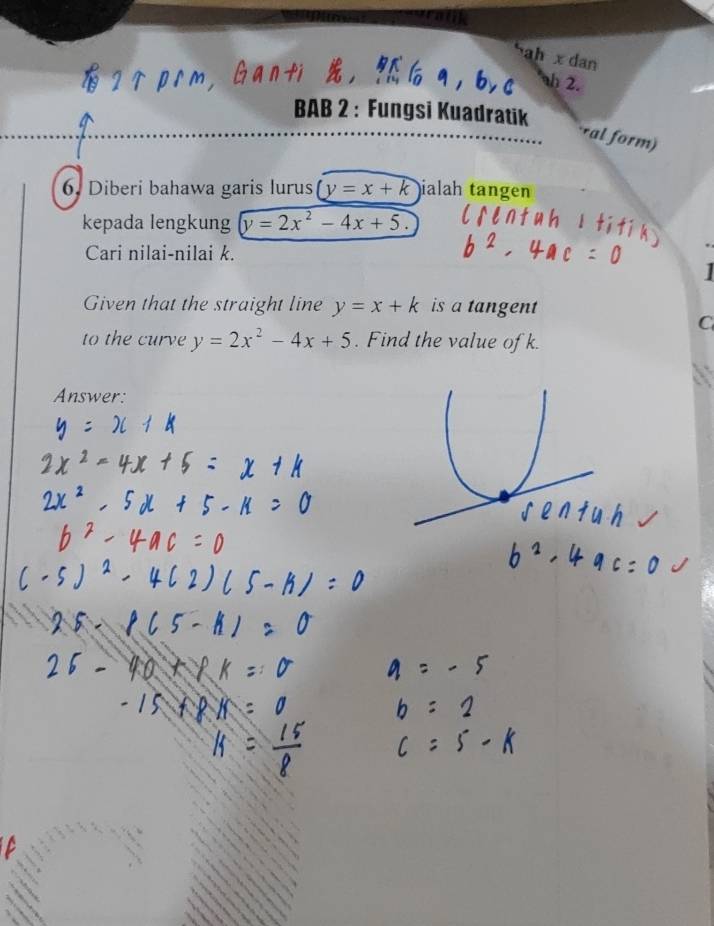 bah x dan
ah 2.
有 2个 prm, Ganti 先, 然后 a, b, c
BAB 2 : Fungsi Kuadratik
ral form)
6. Diberi bahawa garis lurus y = x + k ialah tangen
kepada lengkung y = 2x² − 4x + 5.
Cari nilai-nilai k.
(sentuh 1 titik)
b² - 4ac = 0
Given that the straight line y = x + k is a tangent
to the curve y = 2x² − 4x + 5. Find the value of k.
Answer:
y = x + k
2x² - 4x + 5 = x + k
2x² - 5x + 5 - k = 0
b² - 4ac = 0
(-5)² - 4(2)(5-k) = 0
25 - 8(5-k) = 0
25 - 40 + 8k = 0
-15 + 8k = 0
k = 15/8
sentuh ✓
b² - 4ac = 0 ✓
a = -5
b = 2
c = 5 - k